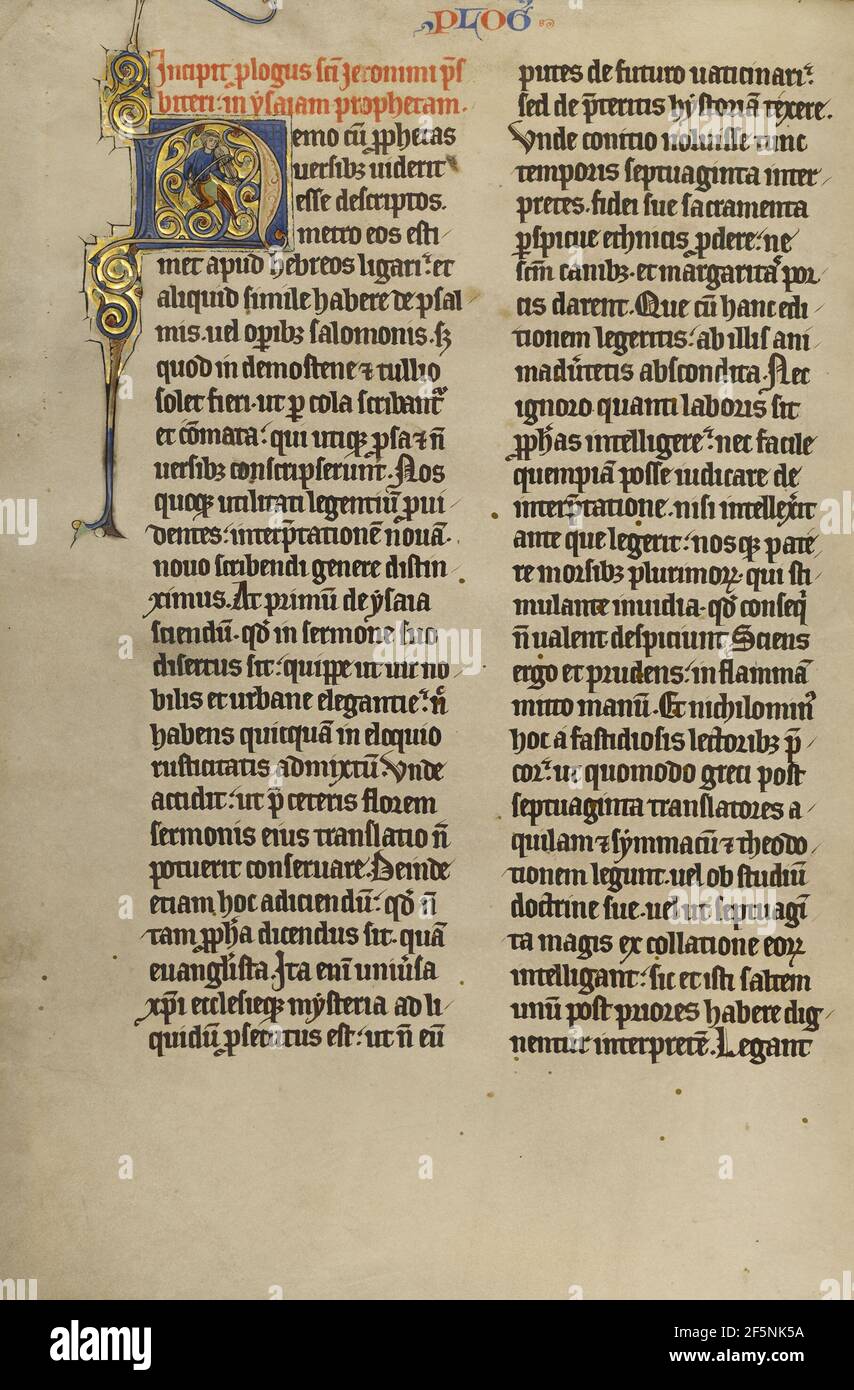 PLOG̃
Incipit ꝓlogus sc̃i Jeronimi p̃s
biteri: in ẏsaiam prophetam.
Nemo cũ ꝓphetas
uersibꝫ uiderit
esse descriptos.
metro eos esti
met apud hebreos ligari: et
aliquid simile habere de psal
mis. uel oꝑibꝫ salomonis. sꝫ
quod in demostene ⁊ tullio
solet fieri. ut ꝑ cola scribant᷑
et cõmata: qui utiqꝫ ꝓsa ⁊ ñ
uersibꝫ conscripserunt. Nos
quoqꝫ utilitati legentiũ ꝓui
dentes: interp̃tationẽ nouã.
nouo scribendi genere distin
ximus. At primũ de ẏsaia
sciendũ. qđ in sermone suo
disertus sit: quippe ut uir no
bilis et urbane elegantie: ñ
habens quicquã in eloquio
rusticitatis admixtũ. Vnde
accidit: ut p̃ ceteris florem
sermonis eius translatio ñ
potuerit conseruare. Deinde
etiam hoc adiciendũ: qđ ñ
tam ꝓph̃a dicendus sit. quã
euangl̃ista. Ita eni᷑ uniũsa
xp̃i ecclesieqꝫ mẏsteria ad li
quidũ ꝓsecutus est: ut ñ eũ
putes de futuro uaticinari:
sed de p̃teritis hẏstoriã texere.
Vnde conicio noluisse tunc
temporis septuaginta inter
pretes. fidei sue sacramenta
ꝑspicue ethnicis ꝓdere: ne
sc̃m canibꝫ. et margaritã por
cis darent. Que cũ hanc edi
tionem legeritis: ab illis ani
madũtetis abscondita. Nec
ignoro quanti laboris sit
ꝓph̃as intelligere: nec facile
quempiã posse iudicare de
interp̃tatione. nisi intellex̃it
ante que legerit: nos qꝫ pate
re morsibꝫ plurimoꝝ. qui sti
mulante inuidia. qđ conseq̃
ñ ualent despiciunt Sciens
ergo et prudens: in flammã
mitto manũ. Et nichilomin᷒
hoc a fastidiosis lectoribꝫ p̃
cor: ut quomodo greci post
septuaginta translatores a
quilam ⁊ sẏmmacũ ⁊ theodo
tionem legunt. uel ob studiũ
doctrine sue. uel ut septuagĩ
ta magis ex collatione eoꝝ
intelligant: sic et isti saltem
unũ post priores habere dig
nentur interpretẽ. Legant
alamy
Image ID: 2F5NK5A
www.alamy.com